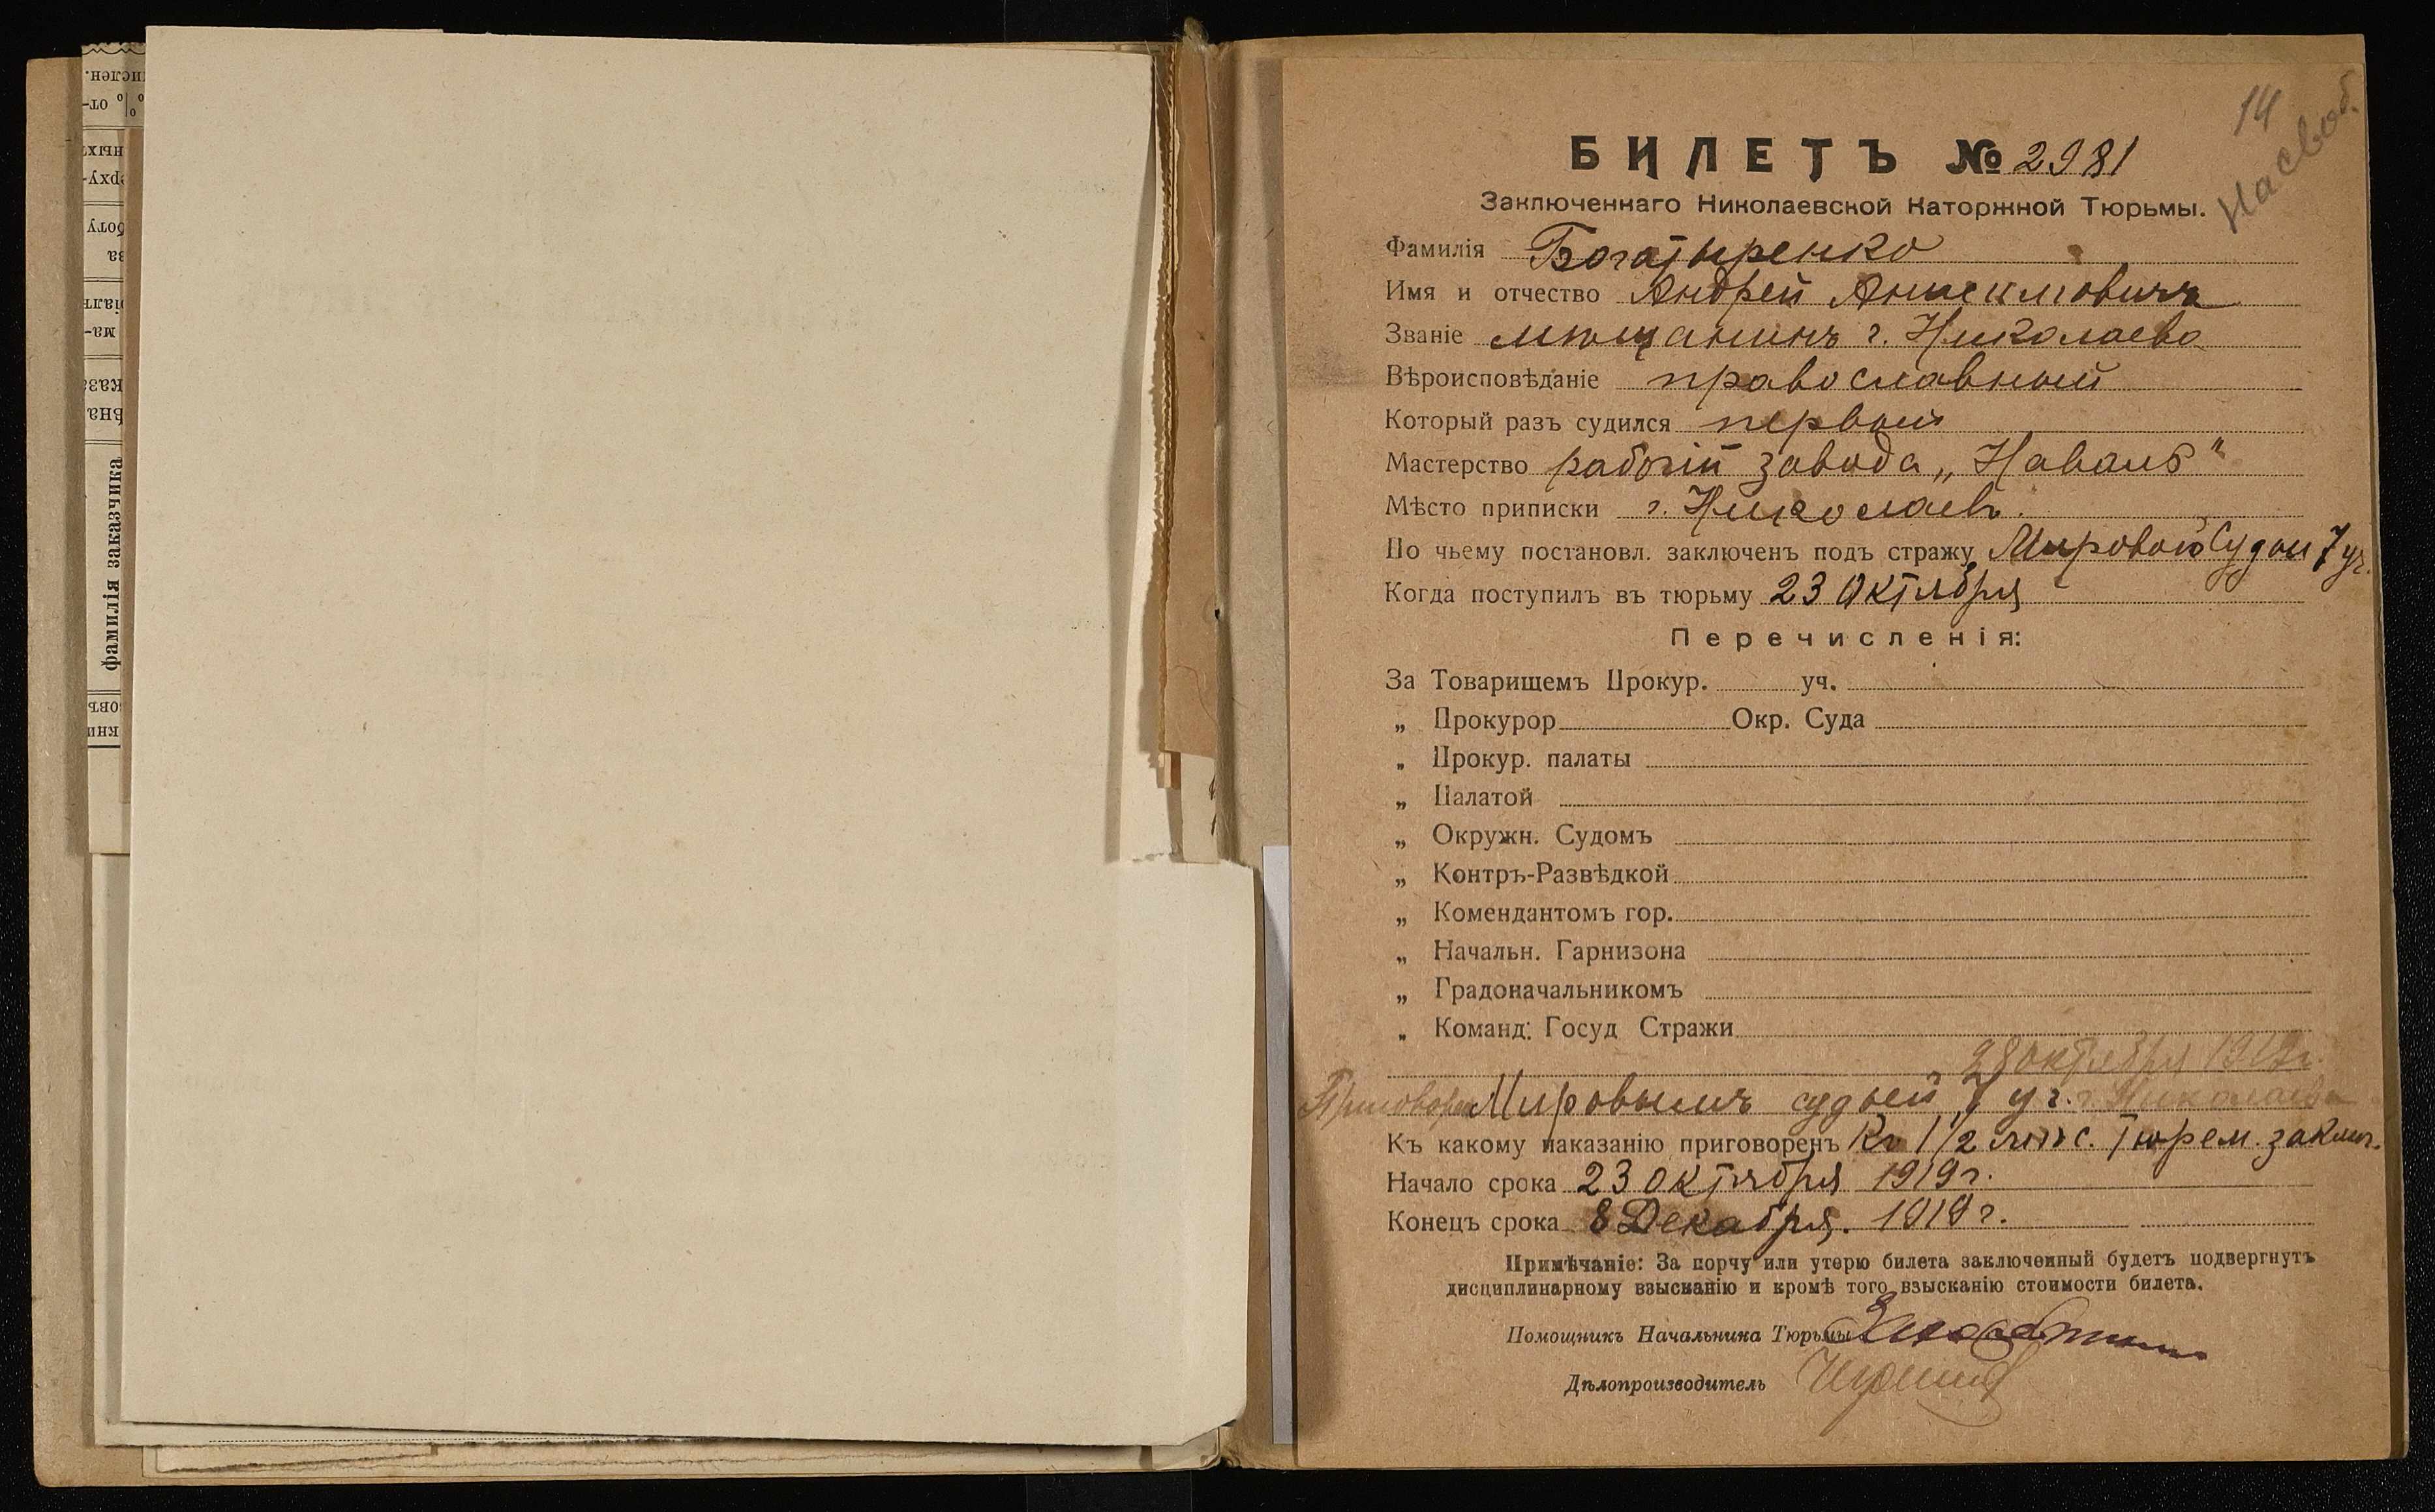 14
На свод.
БИЛЕТЪ № 2981
Заключеннаго Николаевской Каторжной Тюрьмы.
Фамилія Богатыренко
Имя и отчество Андрей Анисимовичъ
Званіе мѣщанинъ г. Николаева
Вѣроисповѣданіе православный
Который разъ судился первый
Мастерство рабочій завода „Наваль"
Мѣсто приписки г. Николаевъ.
По чьему постановл. заключенъ подъ стражу Мировой Судьи 7 уч.
Когда поступилъ въ тюрьму 23 Октября
Перечисленія:
За Товарищемъ Прокур. уч.
„ Прокурор Окр. Суда
„ Прокур. палаты
„ Палатой
„ Окружн. Судомъ
„ Контръ-Развѣдкой
„ Комендантомъ гор.
„ Начальн. Гарнизона
„ Градоначальникомъ
„ Команд: Госуд Стражи
28 октября 1919 г.
Приговорен Мировымъ судьей 7 уч. г. Николаева
Къ какому наказанію приговоренъ Къ 1 1/2 мѣс. тюрем. заключ.
Начало срока 23 октября 1919 г.
Конецъ срока 8 Декабря. 1919 г.
Примѣчаніе: За порчу или утерю билета заключенный будетъ подвергнутъ
дисциплинарному взысканію и кромѣ того взысканію стоимости билета.
Помощникъ Начальника Тюрьмы
Дѣлопроизводитель
фамилія заказчика